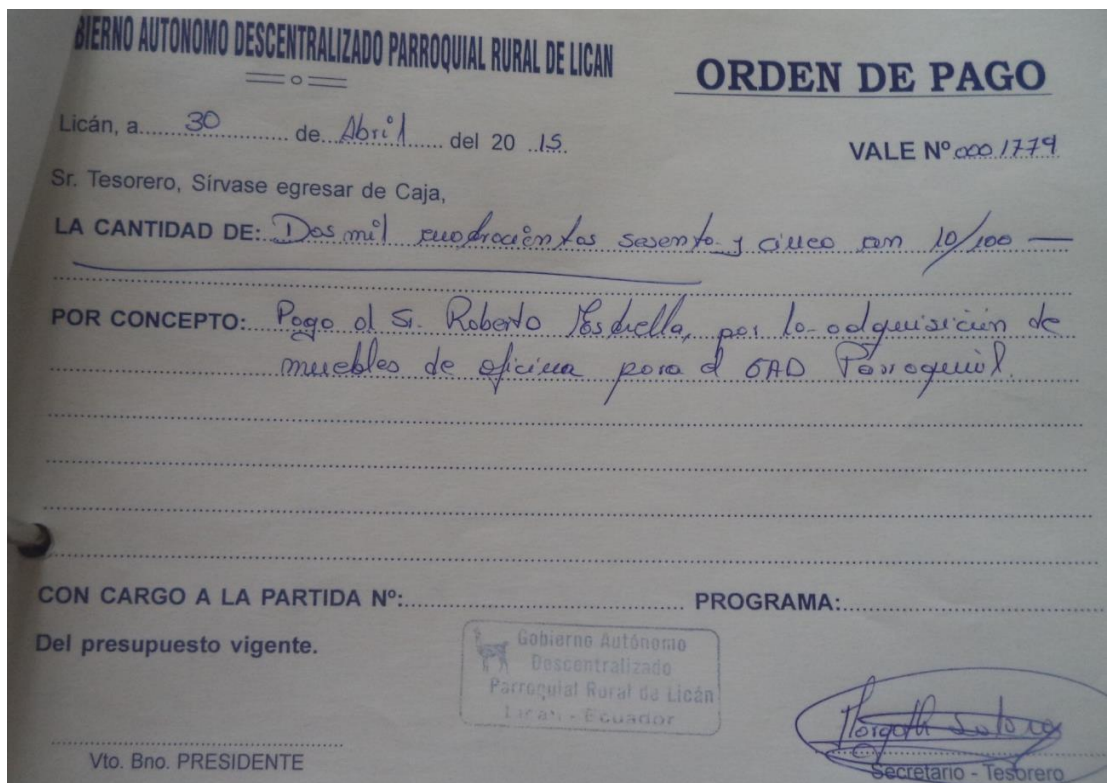 BIERNO AUTONOMO DESCENTRALIZADO PARROQUIAL RURAL DE LICAN
ORDEN DE PAGO
Licán, a 30 de Abril del 2015.
VALE Nº 0001779
Sr. Tesorero, Sírvase egresar de Caja,
LA CANTIDAD DE: Dos mil cuatrocientos sesenta y cinco con 10/100
POR CONCEPTO: Pago al Sr. Roberto Estrella, por la adquisición de
muebles de oficina para el GAD Parroquial.
CON CARGO A LA PARTIDA Nº: PROGRAMA:
Del presupuesto vigente.
Gobierno Autónomo
Descentralizado
Parroquial Rural de Licán
Licán - Ecuador
Vto. Bno. PRESIDENTE
Secretario - Tesorero